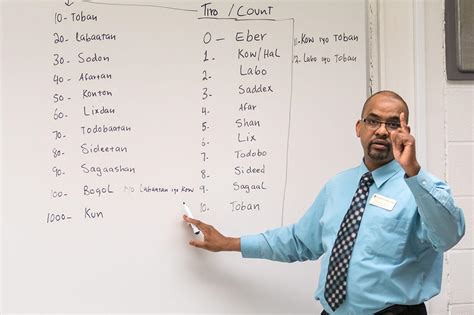 Tiro / Count
10- Toban
20- Labaatan
30- Sodon
40- Afartan
50- Konton
60- Lixdan
70- Todobaatan
80- Sideetan
90- Sagaashan
100- Bogol No. Labaatan iyo Kow
1000- Kun
0- Eber
1. Kow/Hal
2. Labo
3. Saddex
4. Afar
5. Shan
6. Lix
7. Todobo
8. Sideed
9. Sagaal
10. Toban
11. Kow iyo Toban
12. Labo iyo Toban